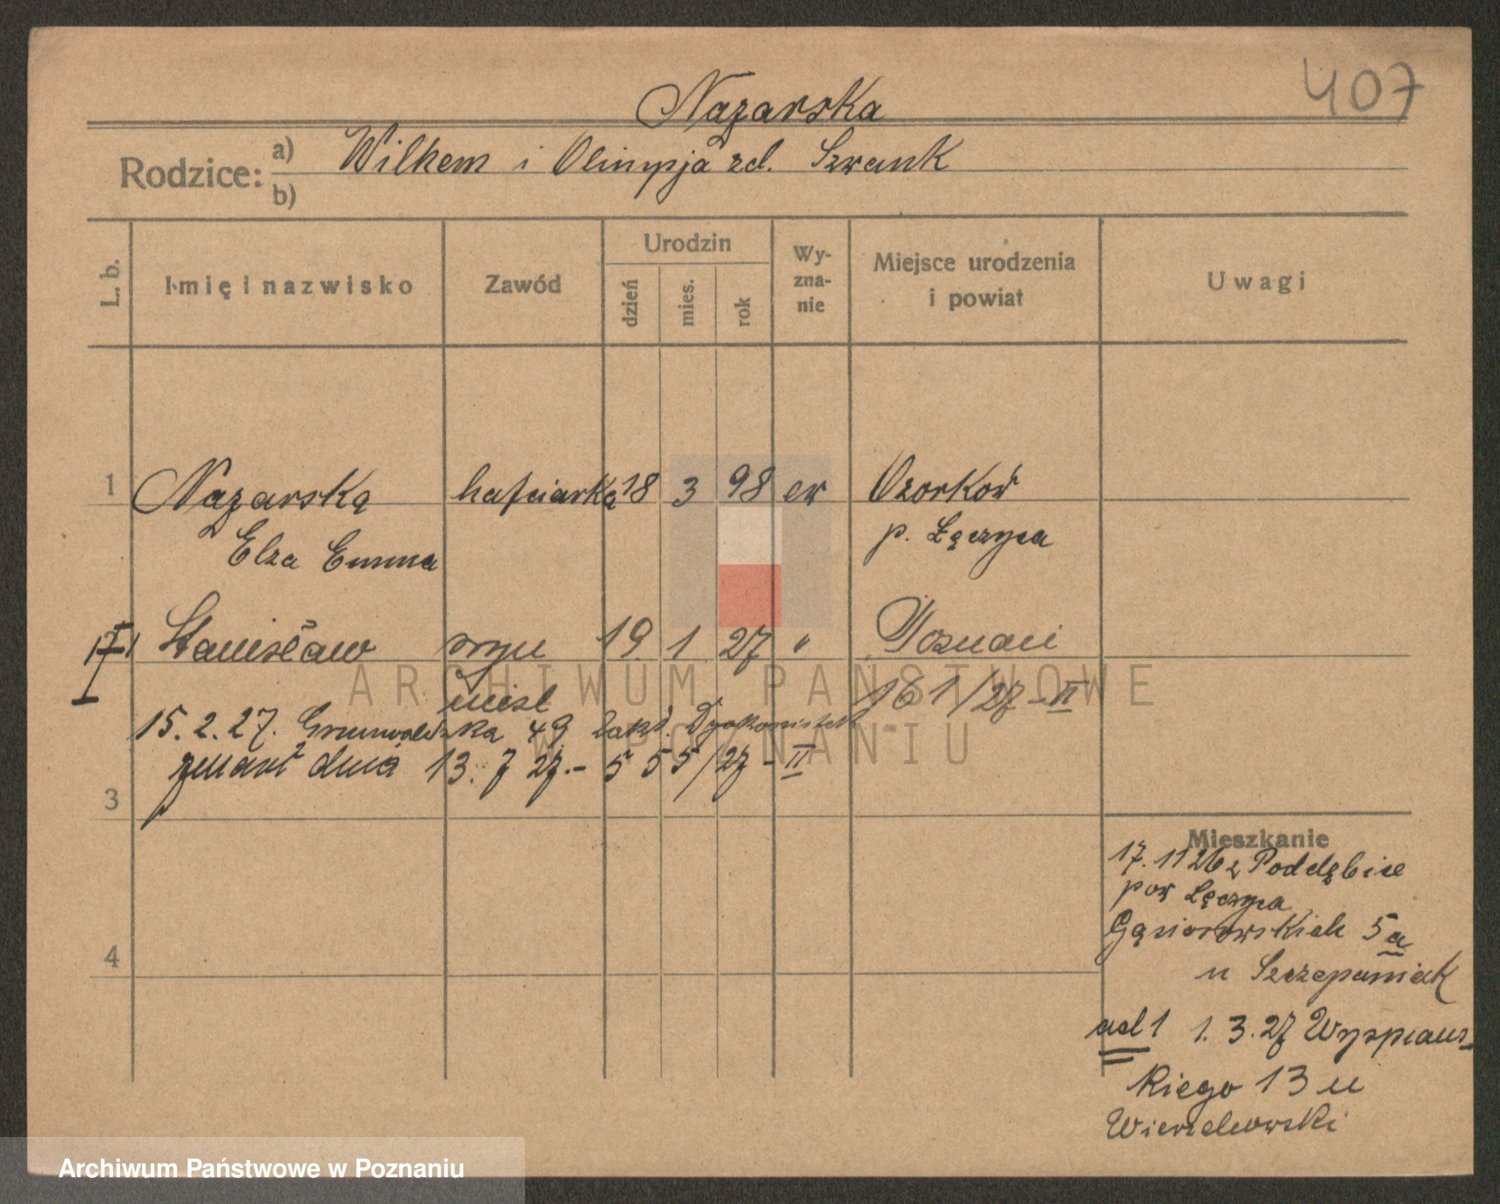 407
Nazarska
Rodzice: a) Wilhem i Olimpja zd. Szwank
b)
L. b. Imię i nazwisko Zawód Urodzin dzień mies. rok Wy-zna-nie Miejsce urodzenia i powiat Uwagi
1 Nazarska hafciarka 18 3 98 ew Ozorków
Elza Emma p. Łęczyca
Stanisław syn 19 1 27 " Poznań
nieśl 161/27-II
15.2.27. Grunwaldzka 49 Zakł. Dyakonisek
zmarł dnia 13. 7 27.- 555/27-II
3
4
Mieszkanie
17.11 26 z Poddębice
pow Łęczyca
Gąsiorowskich 5a
u Szczepaniak
ad 1 1.3.27 Wyspiańs-
kiego 13 u
ARCHIWUM PAŃSTWOWE
W POZNANIU
Archiwum Państwowe w Poznaniu